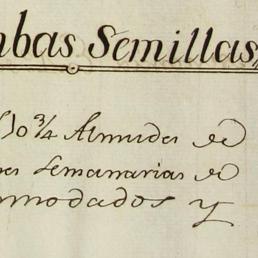 mbas Semillas,,
10 3/4 Almudes de
es semanarias de
modados y